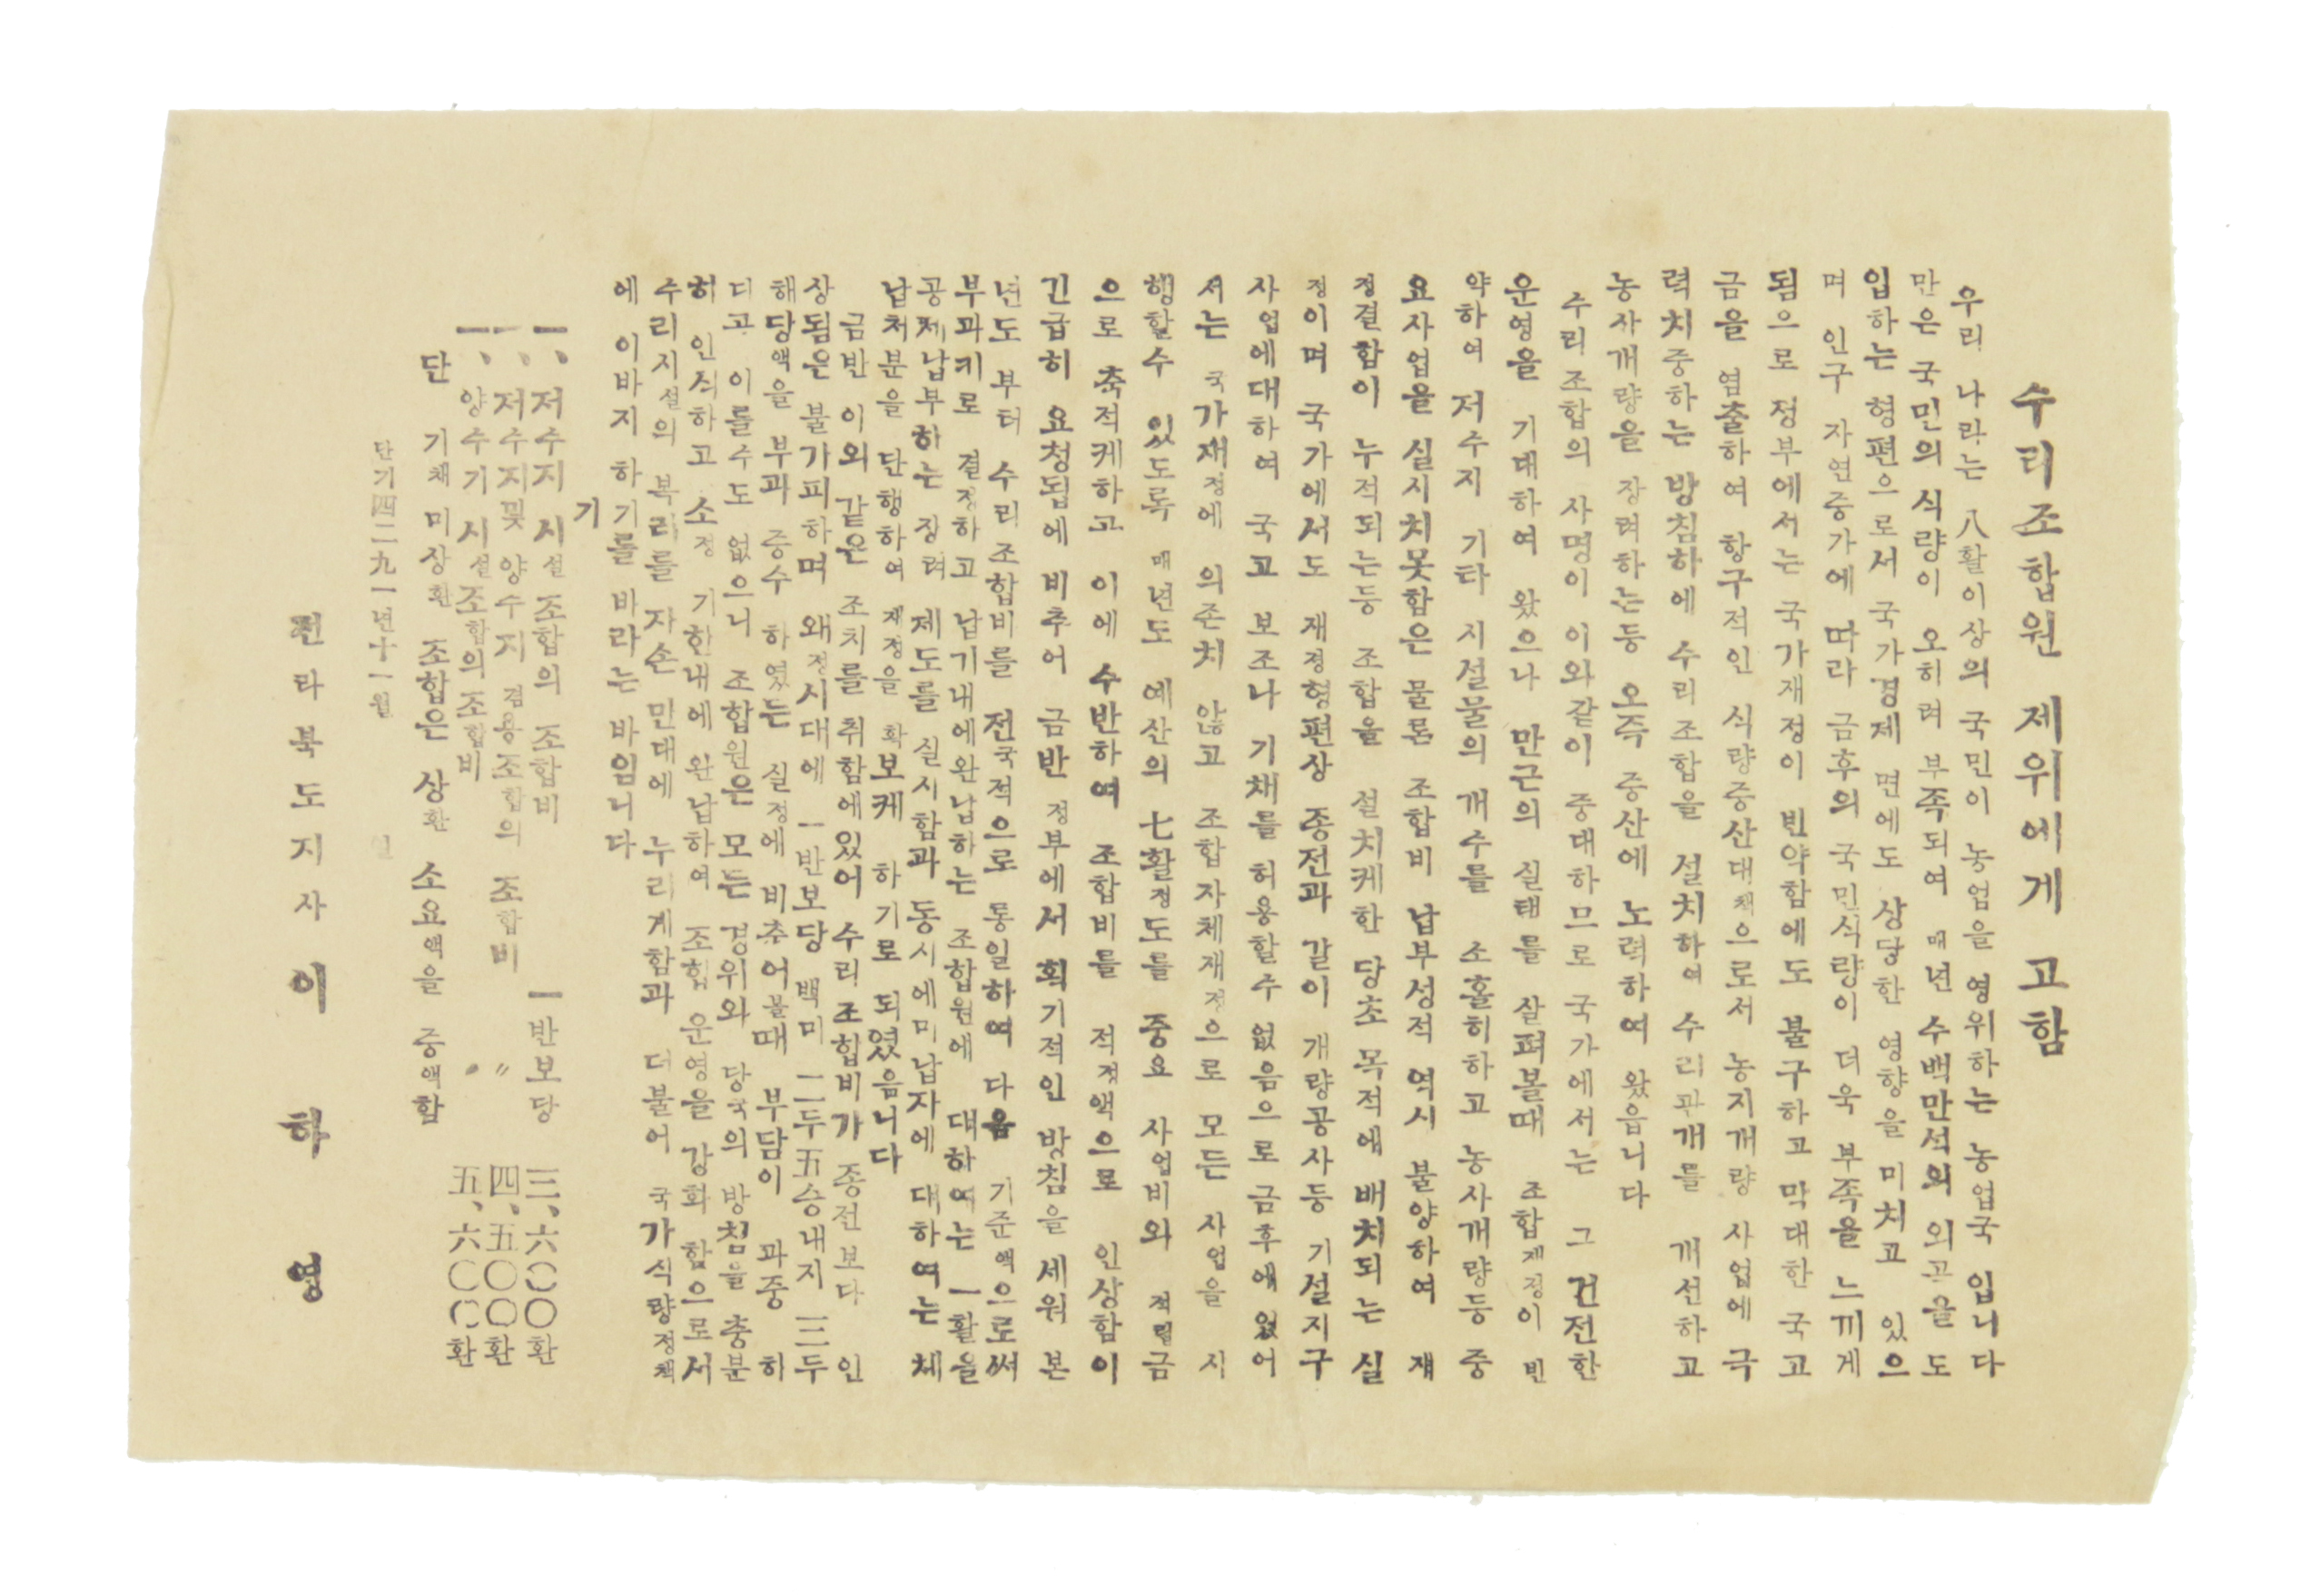 수리조합원 제위에게 고함
우리 나라는 八활이상의 국민이 농업을 영위하는 농업국 입니다
만은 국민의 식량이 오히려 부족되여 매년 수백만석의 외곡을 도
입하는 형편으로서 국가경제 면에도 상당한 영향을 미치고 있으
며 인구 자연증가에 따라 금후의 국민식량이 더욱 부족을 느끼게
됨으로 정부에서는 국가재정이 빈약함에도 불구하고 막대한 국고
금을 염출하여 항구적인 식량증산대책으로서 농지개량 사업에 극
력치중하는 방침하에 수리조합을 설치하여 수리관개를 개선하고
농사개량을 장려하는등 오즉 증산에 노력하여 왔읍니다
수리조합의 사명이 이와같이 중대하므로 국가에서는 그 건전한
운영을 기대하여 왔으나 만근의 실태를 살펴볼때 조합재정이 빈
약하여 저수지 기타 시설물의 개수를 소홀히하고 농사개량등 중
요사업을 실시치못함은 물론 조합비 납부성적 역시 불양하여 재
정결함이 누적되는등 조합을 설치케한 당초 목적에 배치되는 실
정이며 국가에서도 재정형편상 종전과 같이 개량공사등 기설지구
사업에대하여 국고 보조나 기채를 허용할수 없음으로 금후에 있어
서는 국가재정에 의존치 않고 조합자체재정으로 모든 사업을 시
행할수 있도록 매년도 예산의 七활정도를 중요 사업비와 적립금
으로 축적케하고 이에 수반하여 조합비를 적정액으로 인상함이
긴급히 요청됨에 비추어 금반 정부에서 획기적인 방침을 세워 본
년도 부터 수리조합비를 전국적으로 통일하여 다음 기준액으로써
부과키로 결정하고 납기내에완납하는 조합원에 대하여는 一활을
공제납부하는 장려 제도를 실시함과 동시에미납자에 대하여는 체
납처분을 단행하여 재정을 확보케 하기로 되였음니다
금반 이외 같은 조치를 취함에있어 수리조합비가 종전보다 인
상됨은 불가피하며 왜정시대에 一반보당 백미 二두五승내지 三두
해당액을 부과 증수 하였든 실정에 비추어볼때 부담이 과중 히
디고 이를수도 없으니 조합원은 모든 경위와 당국의 방침을 충분
히 인식하고 소정 기한내에완납하여 조합 운영을 강화 함으로서
수리시설의 복리를 자손 만대에 누리게함과 더불어 국가식량정책
에 이바지 하기를 바라는 바입니다
기
一、저수지 시설조합의 조합비 一반보당 三、六〇〇환
一、저수지및 양수지 겸용조합의 조합비 〃 四、五〇〇환
一、양수기 시설조합의조합비 〃 五、六〇〇환
단 기채 미상환 조합은 상환 소요액을 증액함
단기四二九一년十一월 일
전라북도지사 이 하 영